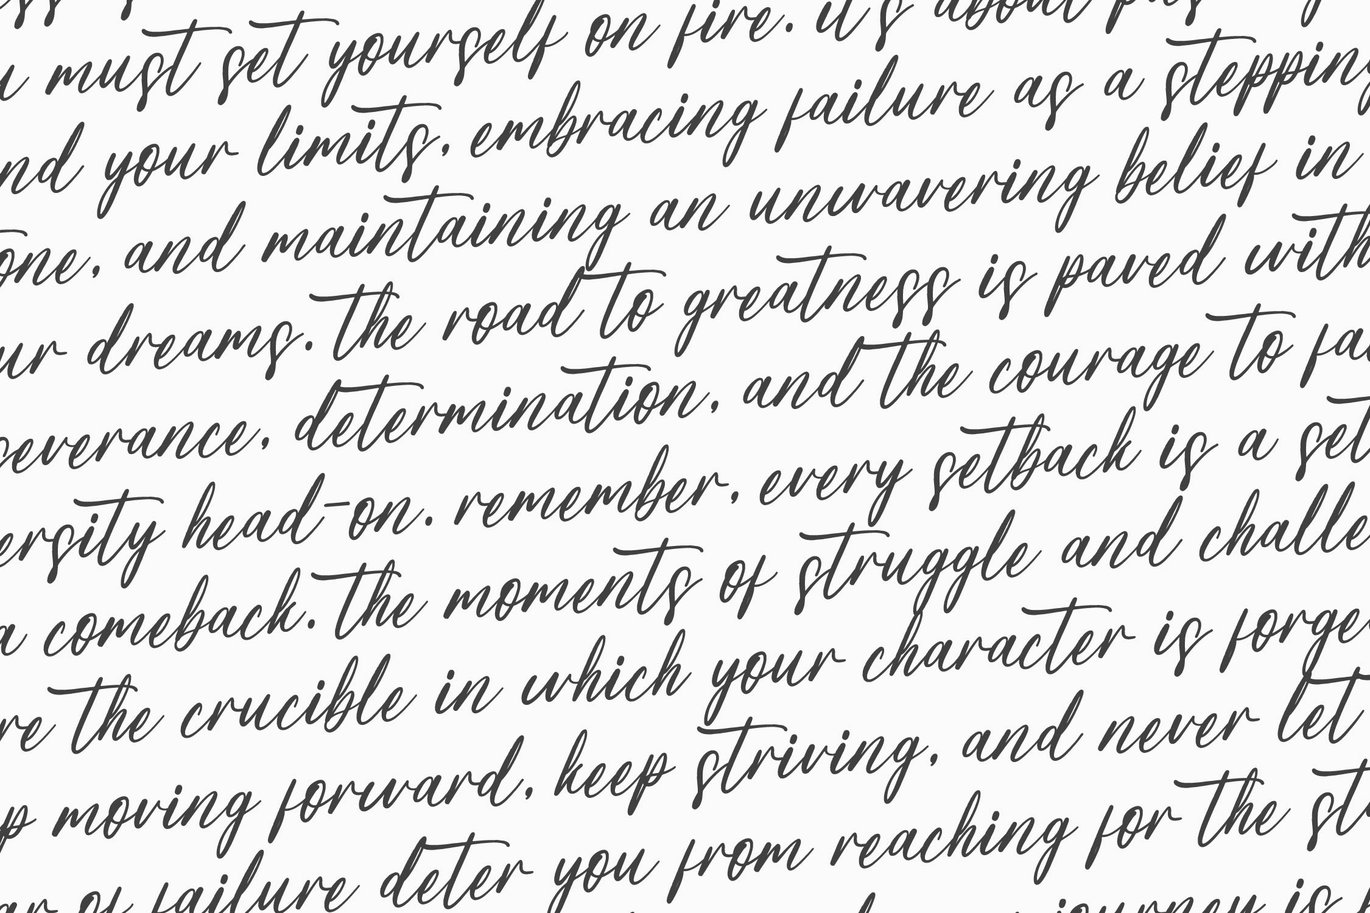 must set yourself on fire. it's about
nd your limits, embracing failure as a stepping
one, and maintaining an unwavering belief in
ur dreams. The road to greatness is paved with
severance, determination, and the courage to fa
ersity head-on. remember, every setback is a set
a comeback. The moments of struggle and challe
re the crucible in which your character is forge
p moving forward, keep striving, and never let
ar of failure deter you from reaching for the sta
journey is